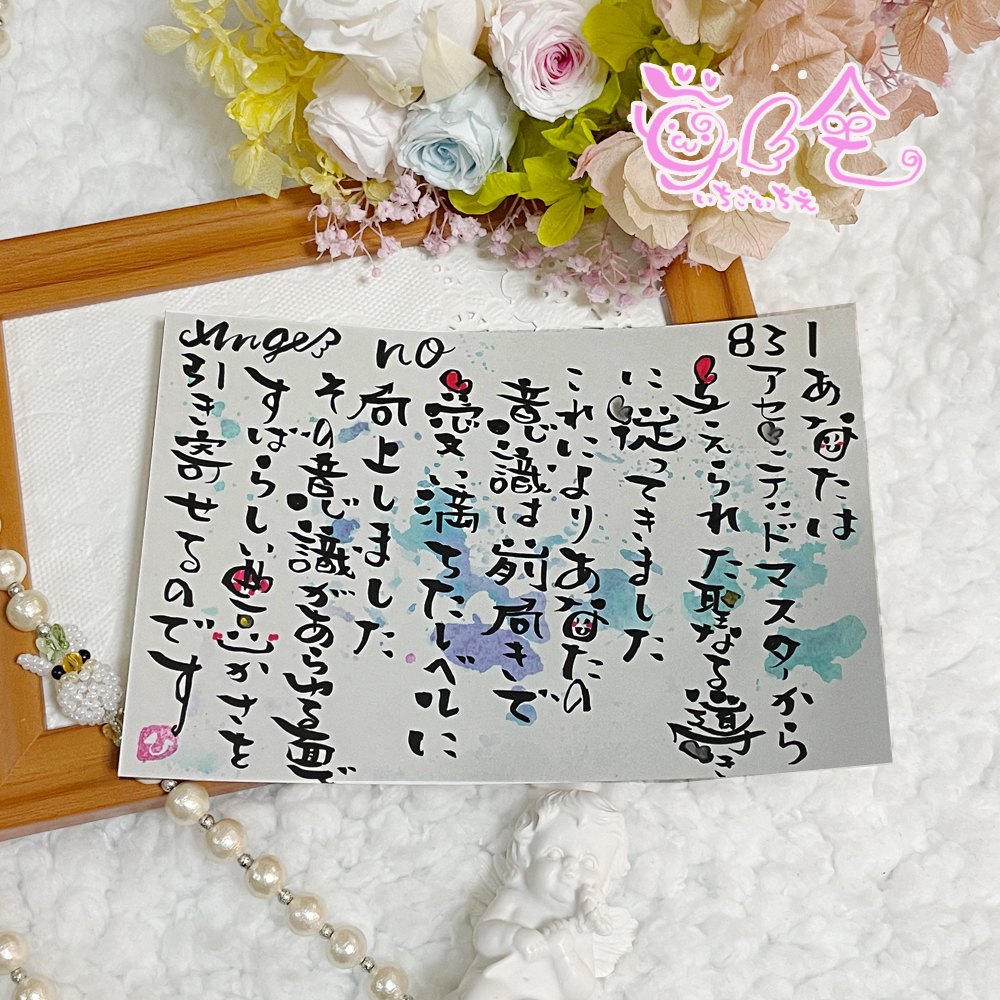 Angel no 831
あなたは
アセンデッドマスターから
与えられた聖なる導き
に従ってきました
これによりあなたの
意識は前向きで
愛に満ちたレベルに
向上しました
その意識があらゆる面で
すばらしい豊かさを
引き寄せるのです
いちごいちえ